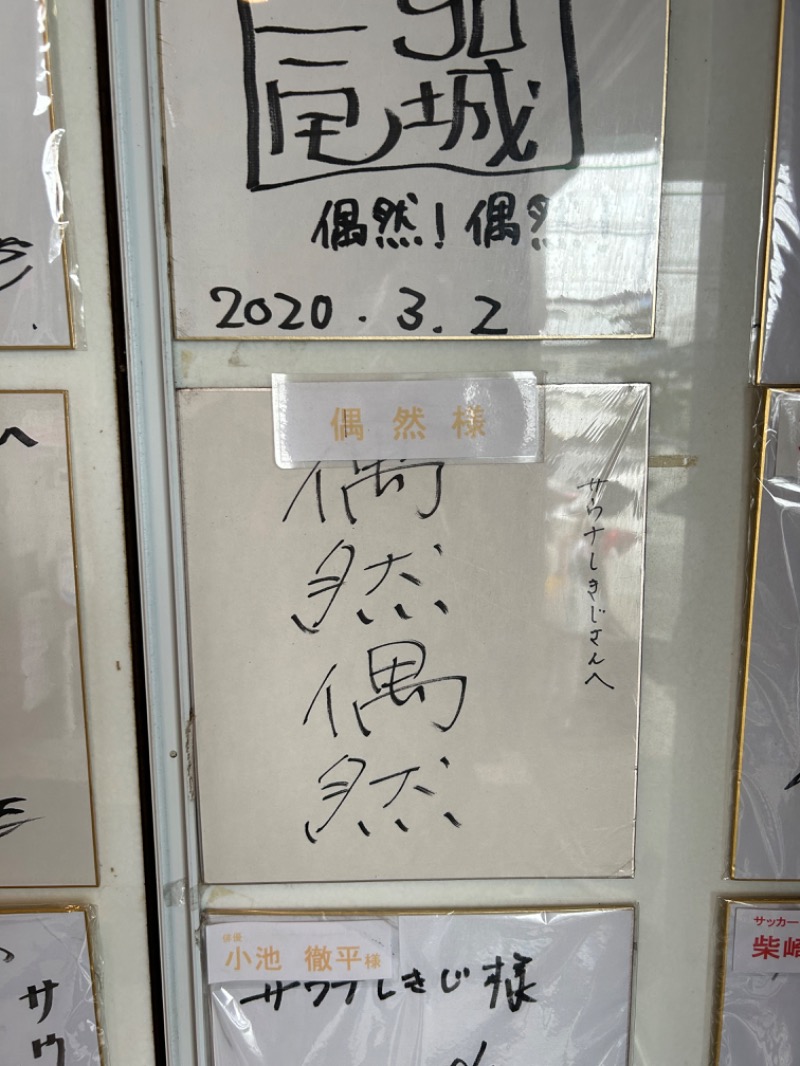 尾城
偶然!偶然
2020.3.2
偶然様
偶
然
偶
然
サウナしきじさんへ
俳優
小池 徹平様
サウナしきじ様
サウ
サッカー
柴崎